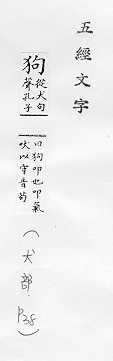 五經文字
狗
從犬句
聲孔子
曰狗叩也叩氣
吠以守音苟
(犬部. P38)